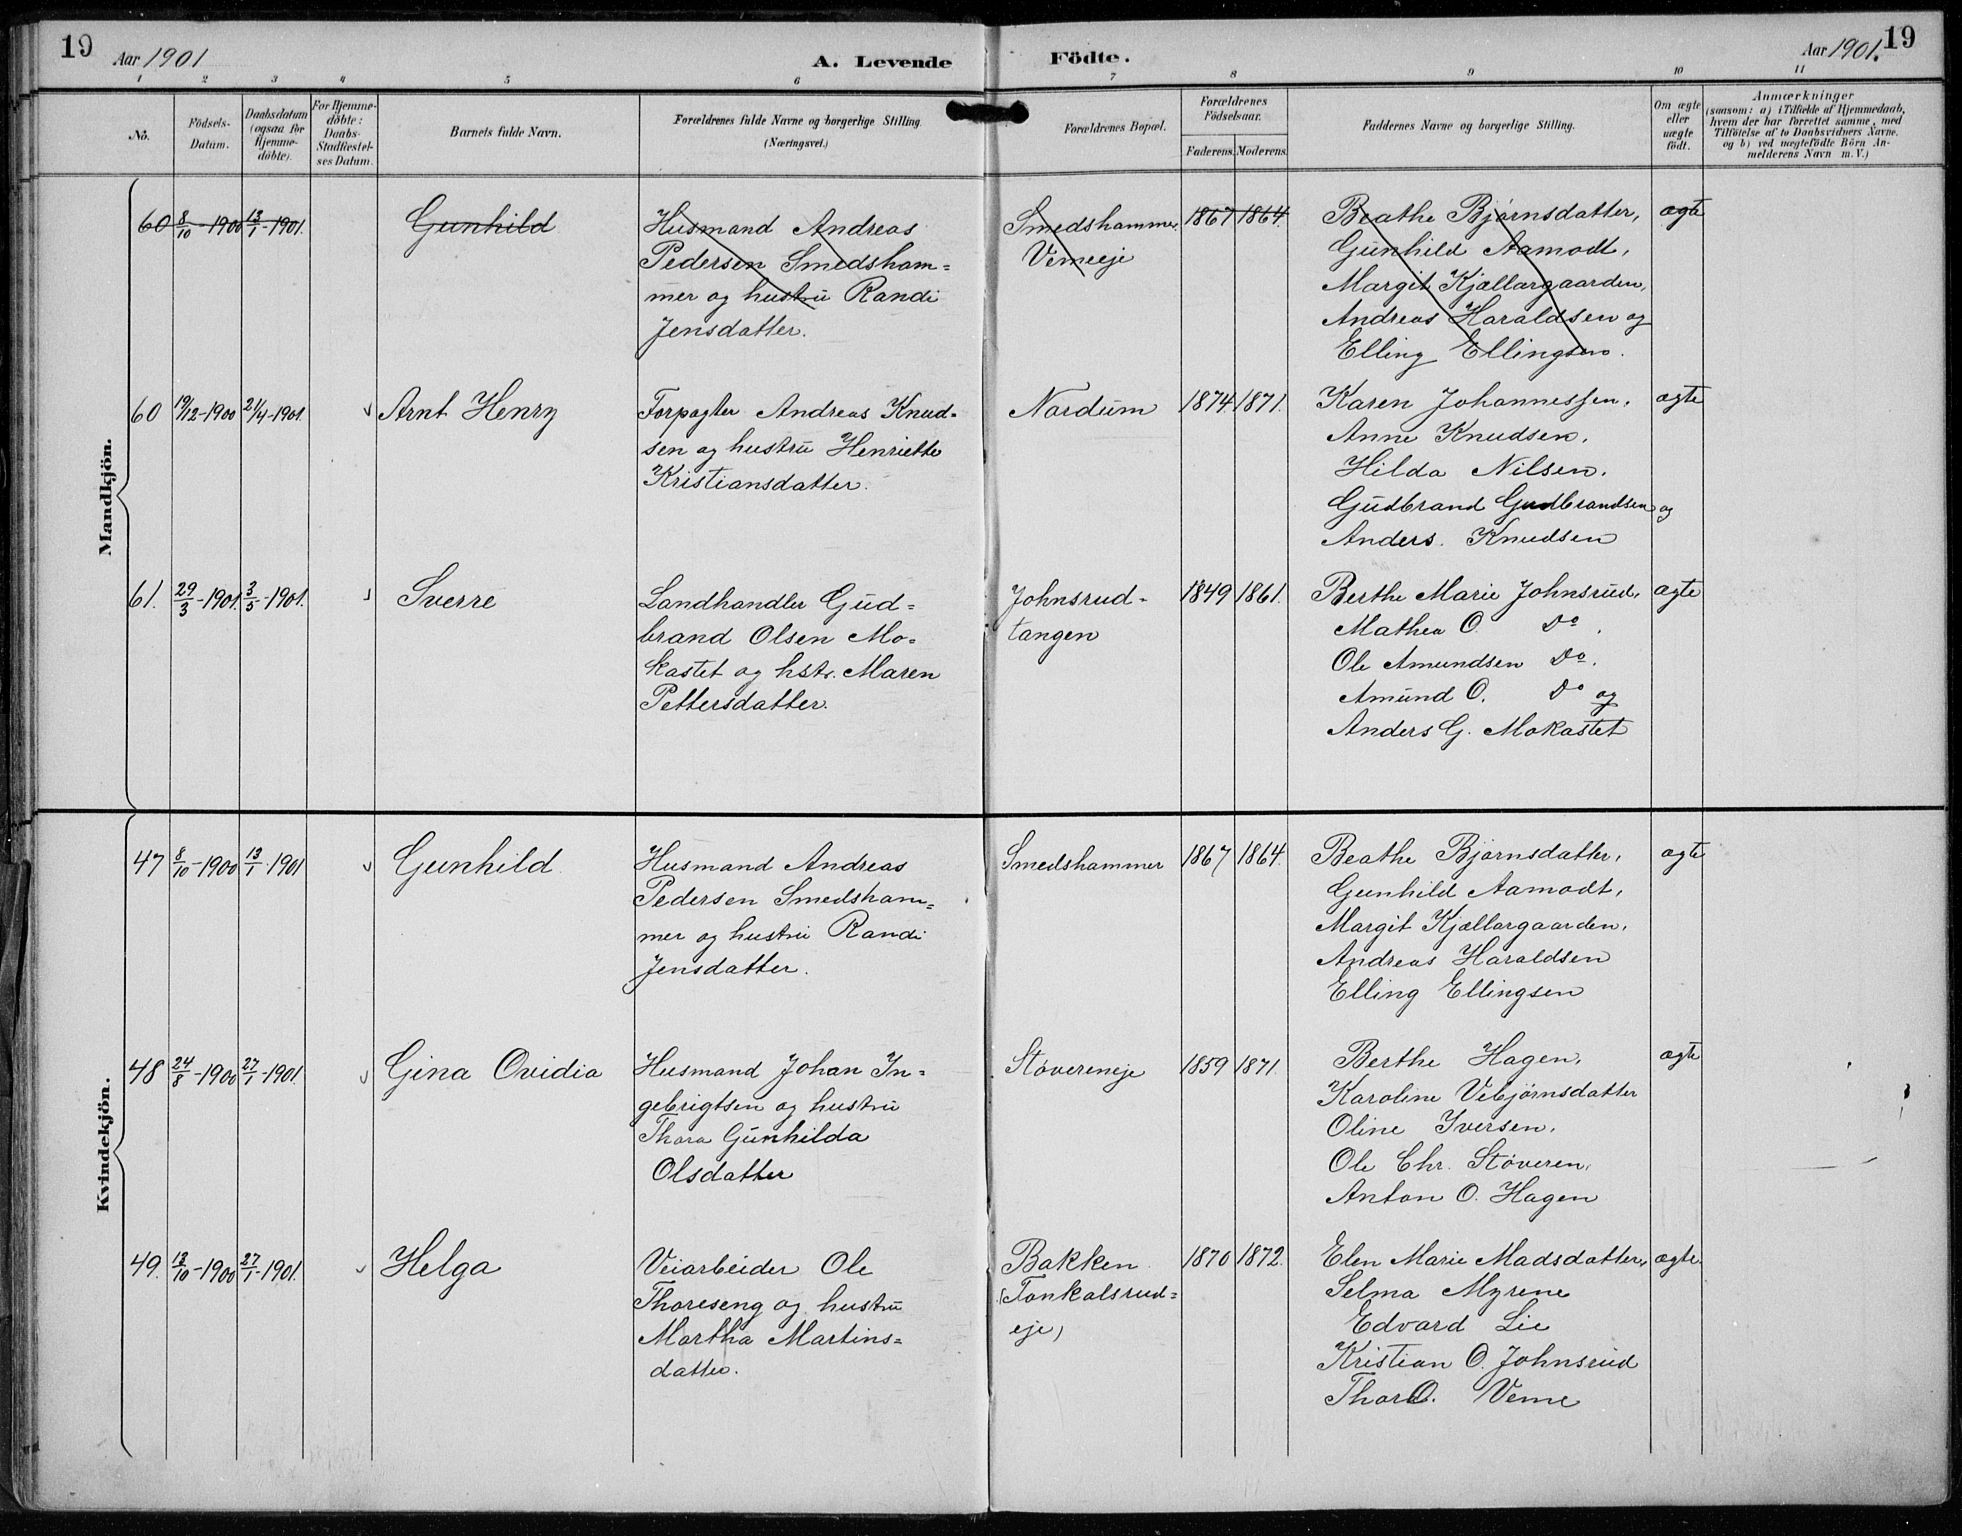 19
Aar 1901
A. Levende
Födte.
Aar 1901.
19
1 2 3 4 5 6 7 8 9 10 11
No.
Födsels-
Datum.
Daabsdatum
(ogsaa for
Hjemme-
döbte).
For Hjemme-
döbte:
Daabs-
Stadfæstel-
ses Datum.
Barnets fulde Navn.
Forældrenes fulde Navne og borgerlige Stilling.
(Næringsvei.)
Forældrenes Bopæl.
Forældrenes
Födselsaar.
Faderens. Moderens.
Faddernes Navne og borgerlige Stilling.
Om ægte
eller
uægte
födt.
Anmærkninger
(saasom: a) i Tilfælde af Hjemmedaab,
hvem der har forrettet samme, med
Tilföielse af to Daabsvidners Navne.
og b) ved uægtefödte Börn An-
melderens Navn m. V.)
Mandkjön.
60 8/10-1900 13/1-1901. Gunhild
Husmand Andreas
Pedersen Smedsham=
mer og hustru Randi
Jensdatter.
Smedshammer
Vemeeje
1867 1864.
Beathe Bjørnsdatter,
Gunhild Aamodt,
Margit Kjællargaarden,
Andreas Haraldsen og
Elling Ellingsen.
ægte
60 19/12-1900 21/4-1901. Arnt Henry
Forpagter Andreas Knud=
sen og hustru Henriette
Kristiansdatter.
Nordum
1874 1871.
Karen Johannessen,
Anne Knudsen,
Hilda Nilsen,
Gudbrand Gudbrandsen og
Anders Knudsen
ægte
61. 29/3-1901. 3/5-1901. Sverre
Landhandler Gud=
brand Olsen Mo=
kastet og hstr. Maren
Pettersdatter.
Johnsrud-
tangen
1849 1861.
Berthe Marie Johnsrud,
Mathea O. Do.
Ole Amundsen Do.
Amund O. Do og
Anders G. Mokastet
ægte
Kvindekjön.
47 8/10-1900 13/1-1901 Gunhild
Husmand Andreas
Pedersen Smedsham=
mer og hustru Randi
Jensdatter.
Smedshammer
1867 1864.
Beathe Bjørnsdatter,
Gunhild Aamodt,
Margit Kjællargaarden,
Andreas Haraldsen
Elling Ellingsen
ægte
48 24/8-1900 27/1-1901. Gina Ovidia
Husmand Johan In=
gebrigtsen og hustru
Thora Gunhilda
Olsdatter
Støvereneje
1859 1871.
Berthe Hagen,
Karoline Vebjørnsdatter
Oline Iversen,
Ole Chr. Støveren,
Anton O. Hagen
ægte
49. 13/10-1900 27/1-1901. Helga
Veiarbeider Ole
Thoreseng og hustru
Martha Martins=
datter.
Bakken
(Tonkalsrud=
eje)
1870 1872.
Elen Marie Madsdatter,
Selma Myrene
Edvard Lie
Kristian O. Johnsrud
Thor O. Veme
ægte.